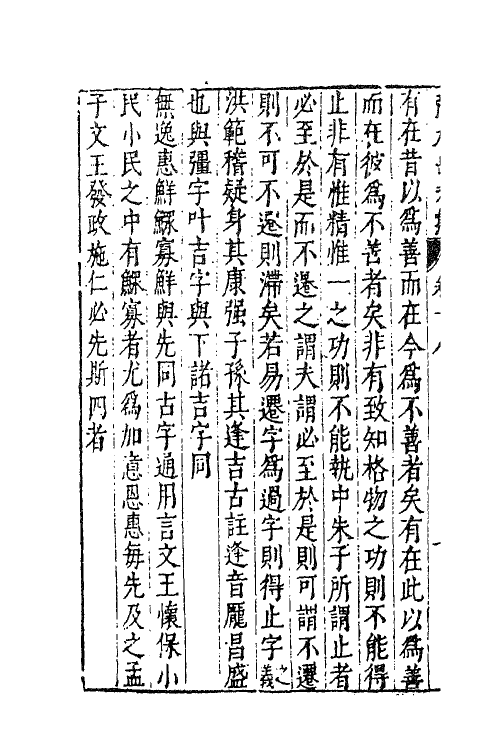 有在昔以為善而在今為不善者矣有在此以為善
而在彼為不善者矣非有致知格物之功則不能得
止非有惟精惟一之功則不能執中朱子所謂止者
必至於是而不遷之謂夫謂必至於是則可謂不遷
則不可不遷則滯矣若易遷字為過字則得止字之義
洪範稽疑身其康强子孫其逢吉古註逢音龐昌盛
也與彊字叶吉字與下諸吉字同
無逸惠鮮鰥寡鮮與先同古字通用言文王懷保小
民小民之中有鰥寡者尤為加意恩惠每先及之孟
子文王發政施仁必先斯四者